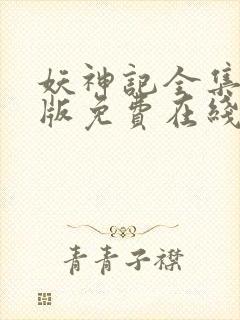 妖神記全集
版免費在綫
青青子襟